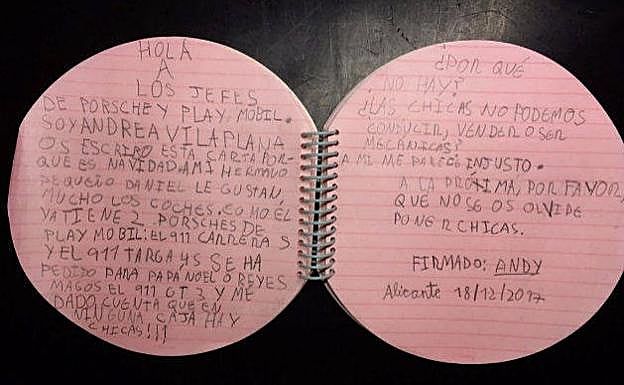 HOLA
A
LOS JEFES
DE PORSCHE Y PLAY MOBIL.
SOY ANDREA VILAPLANA
OS ESCRIBO ESTA CARTA POR-
QUE ES NAVIDAD. A MI HERMANO
PEQUEÑO DANIEL LE GUSTAN
MUCHO LOS COCHES. COMO ÉL
YA TIENE 2 PORSCHES DE
PLAY MOBIL: EL 911 CARRERA S
Y EL 911 TARGA 4S SE HA
PEDIDO PARA PAPA NOEL O REYES
MAGOS EL 911 GT 3 Y ME
DADO CUENTA QUE EN
NINGUNA CAJA HAY
CHICAS!!!
¿POR QUÉ
NO HAY?
¿LAS CHICAS NO PODEMOS
CONDUCIR, VENDER O SER
MECÁNICAS?
A MI ME PARECE INJUSTO.
A LA PRÓXIMA, POR FAVOR,
QUE NO SE OS OLVIDE
PONER CHICAS.
FIRMADO: ANDY
Alicante 18/12/2017